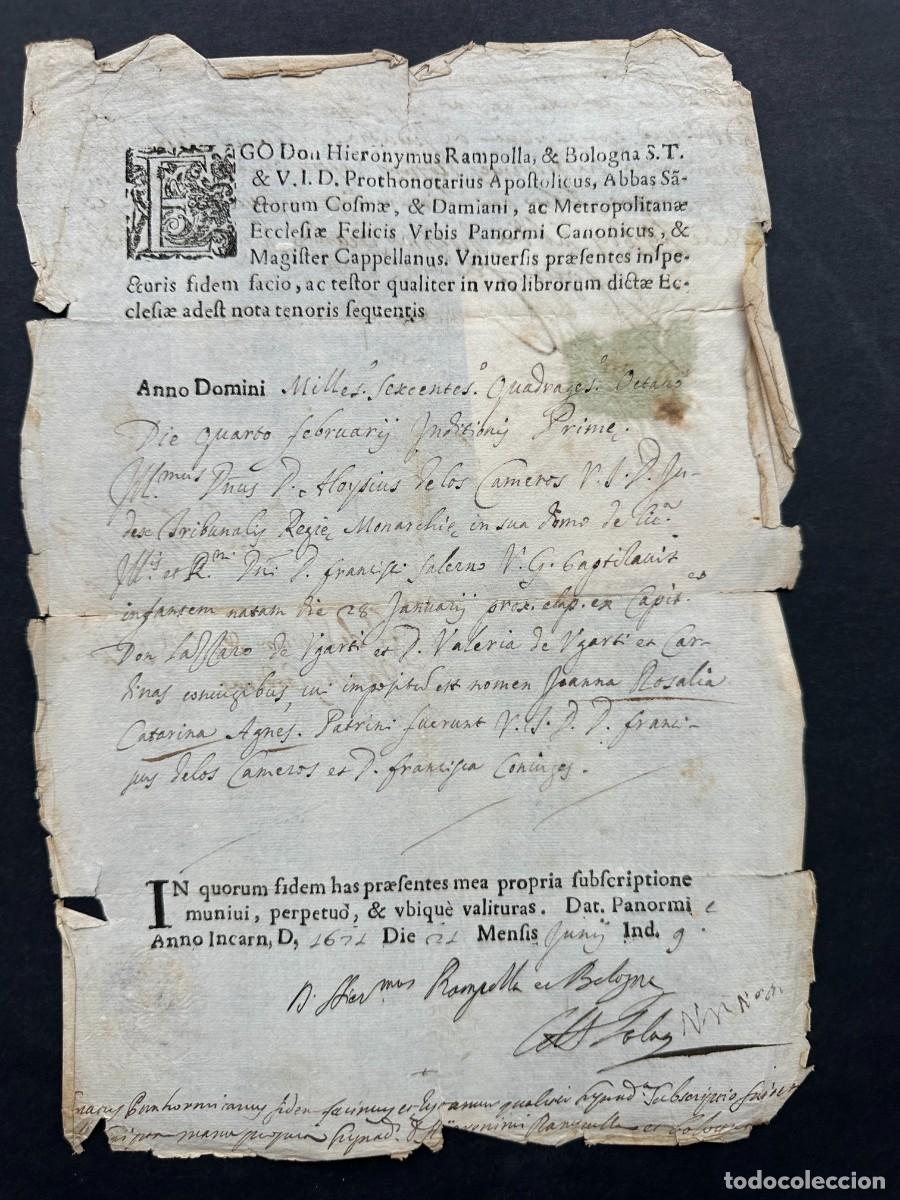 EGO Don Hieronymus Rampolla, & Bologna S.T.
& V. I. D. Prothonotarius Apostolicus, Abbas Sã-
ctorum Cosmæ, & Damiani, ac Metropolitanæ
Ecclesiæ Felicis Vrbis Panormi Canonicus, &
Magister Cappellanus. Vniuersis præsentes inspe-
cturis fidem facio, ac testor qualiter in vno librorum dictæ Ec-
clesiæ adest nota tenoris sequentis
Anno Domini Milles.º Sexcentes.º Quadrages.º Octauo
Die quarto februarij Inditionis Prime.
Ill.mus Dnus D. Aloysius de los Cameros V. J. D. Ju-
dex Tribunalis Regie Monarchie in sua domo de lic.a
Ill.s et R.mi Dni D. francisci Salerno V. G. baptizauit
infantem natam die 28 Januarij prox. elap. ex Capit.
Don Lazzaro de Ygarti et D. Valeria de Ygarti et Car-
dinas coniugibus, cui impositũ est nomen Joanna Rosalia
Catarina Agnes. Patrini fuerunt V. J. D. D. franci-
scus de los Cameros et D. francisca Coniuges.
IN quorum fidem has præsentes mea propria subscriptione
muniui, perpetuò, & vbiquè valituras. Dat. Panormi
Anno Incarn, D, 1671 Die 21 Mensis Junij Ind. 9.e
D. Hier.mus Rampolla et Bologna
Panhormitanus fidem facimus et qualiter subscriptio
manu propria Rampolla et Bologna
todocoleccion